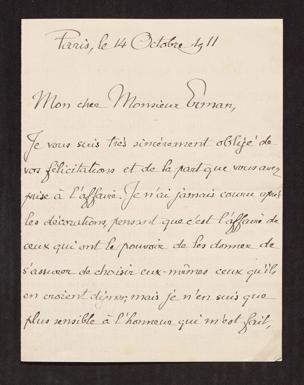 Paris, le 14 Octobre 1911
Mon cher Monsieur Erman,
Je vous suis très sincèrement obligé de
vos félicitations et de la part que vous avez
prise à l'affaire. Je n'ai jamais couru après
les décorations, pensant que c'est l'affaire de
ceux qui ont le pouvoir de les donner de
s'assurer de choisir eux-mêmes ceux qu'ils
en croient dignes; mais je n'en suis que
plus sensible à l'honneur qui m'est fait,